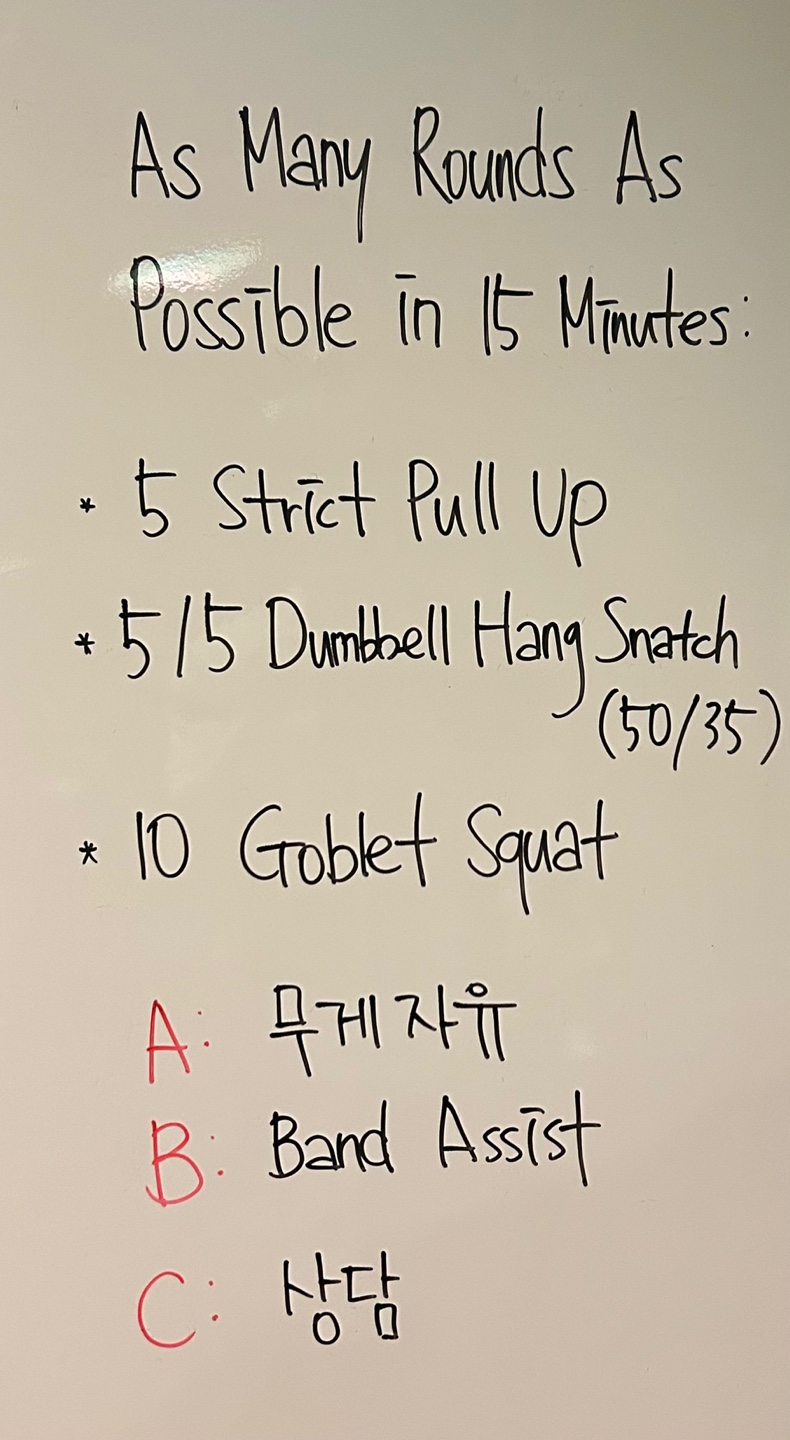 As Many Rounds As
Possible in 15 Minutes:
* 5 Strict Pull Up
* 5/5 Dumbbell Hang Snatch
(50/35)
* 10 Goblet Squat
A: 무게자유
B: Band Assist
C: 상담